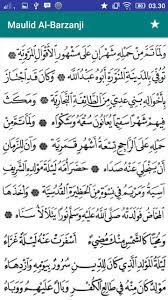 03.30
Maulid Al-Barzanji
وَلَمَّا تَمَّ مِنْ حَمْلِهِ شَهْرَانِ عَلَى مَشْهُورِ الْأَقْوَالِ الْمَرْوِيَّةِ ۞
تُوُفِّيَ بِالْمَدِيْنَةِ الْمُنَوَّرَةِ أَبُوْهُ عَبْدُ اللهِ ۞ وَكَانَ قَدِ اجْتَازَ
بِأَخْوَالِهِ بَنِيْ عَدِيٍّ مِنَ الطَّائِفَةِ النَّجَّارِيَّةِ ۞ وَمَكَثَ
فِيْهِمْ شَهْرًا سَقِيْمًا يُعَانُوْنَ سُقْمَهُ وَشَكْوَاهُ ۞ وَلَمَّا تَمَّ مِنْ
حَمْلِهِ عَلَى الرَّاجِحِ تِسْعَةُ أَشْهُرٍ قَمَرِيَّةٍ ۞ وَآنَ لِلزَّمَانِ
أَنْ يَنْجَلِيَ عَنْهُ صَدَاهُ ۞ حَضَرَ أُمَّهُ لَيْلَةَ مَوْلِدِهِ الشَّرِيْفِ
آسِيَةُ وَمَرْيَمُ فِيْ نِسْوَةٍ مِنَ الْحَظِيْرَةِ الْقُدْسِيَّةِ ۞
وَأَخَذَهَا الْمَخَاضُ فَوَلَدَتْهُ نُوْرًا يَتَلَأْلَأُ سَنَاهُ ۞
وَمُحَيًّا كَالشَّمْسِ مِنْكَ مُضِيْءٌ ۞ أَسْفَرَتْ عَنْهُ لَيْلَةٌ غَرَّاءُ
لَيْلَةُ الْمَوْلِدِ الَّذِيْ كَانَ لِلدِّيْنِ سُرُوْرٌ بِيَوْمِهِ وَازْدِهَاءُ